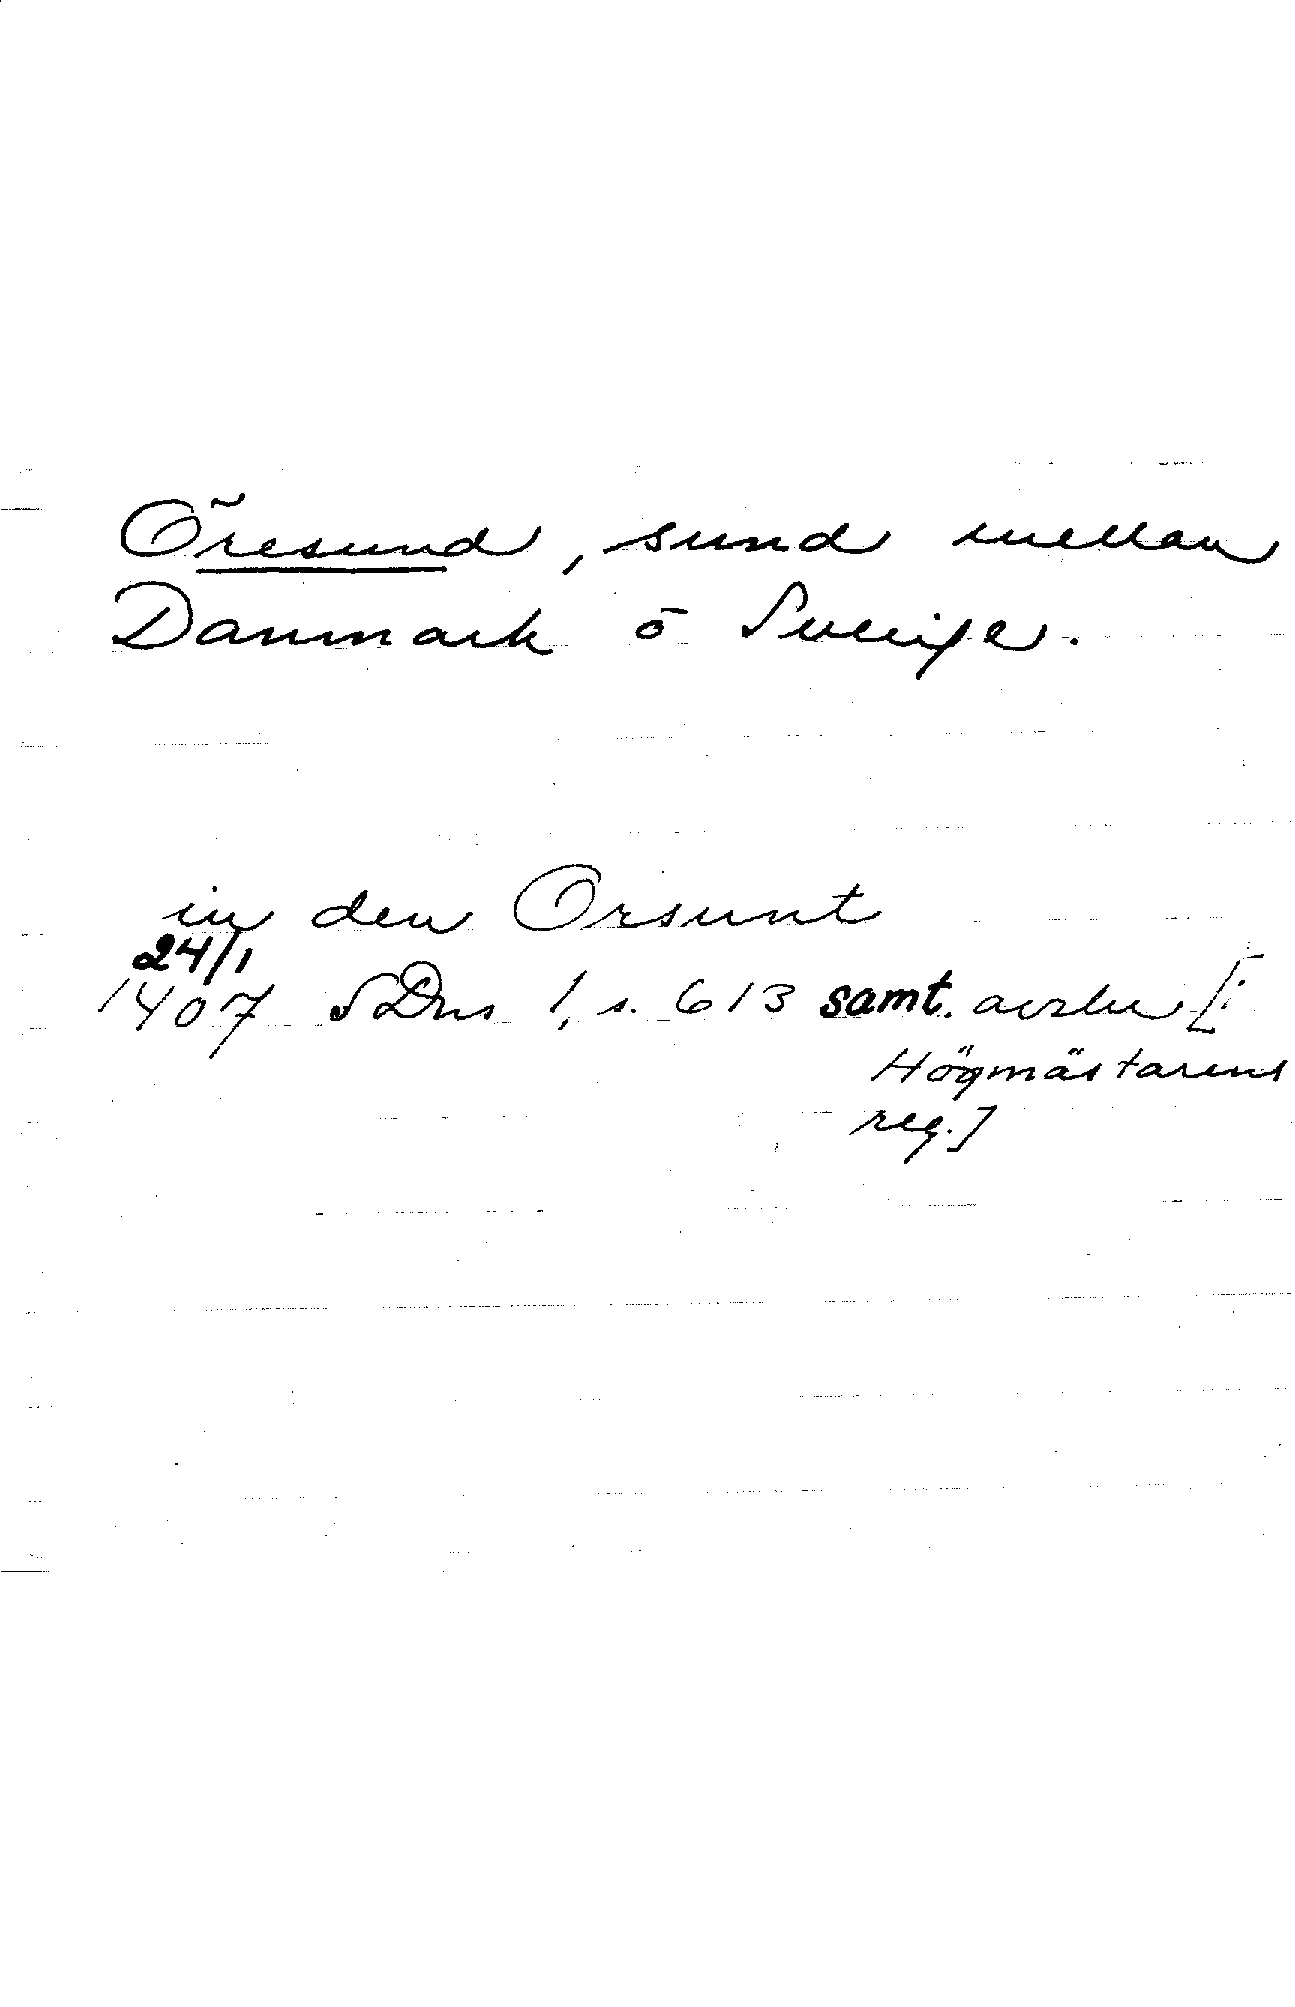 Öresund, sund mellan
Danmark o Sverige.
in den Orsunt
24/1
1407 SDns 1, s. 613 samt. avskr [i
Högmästarens
reg.]